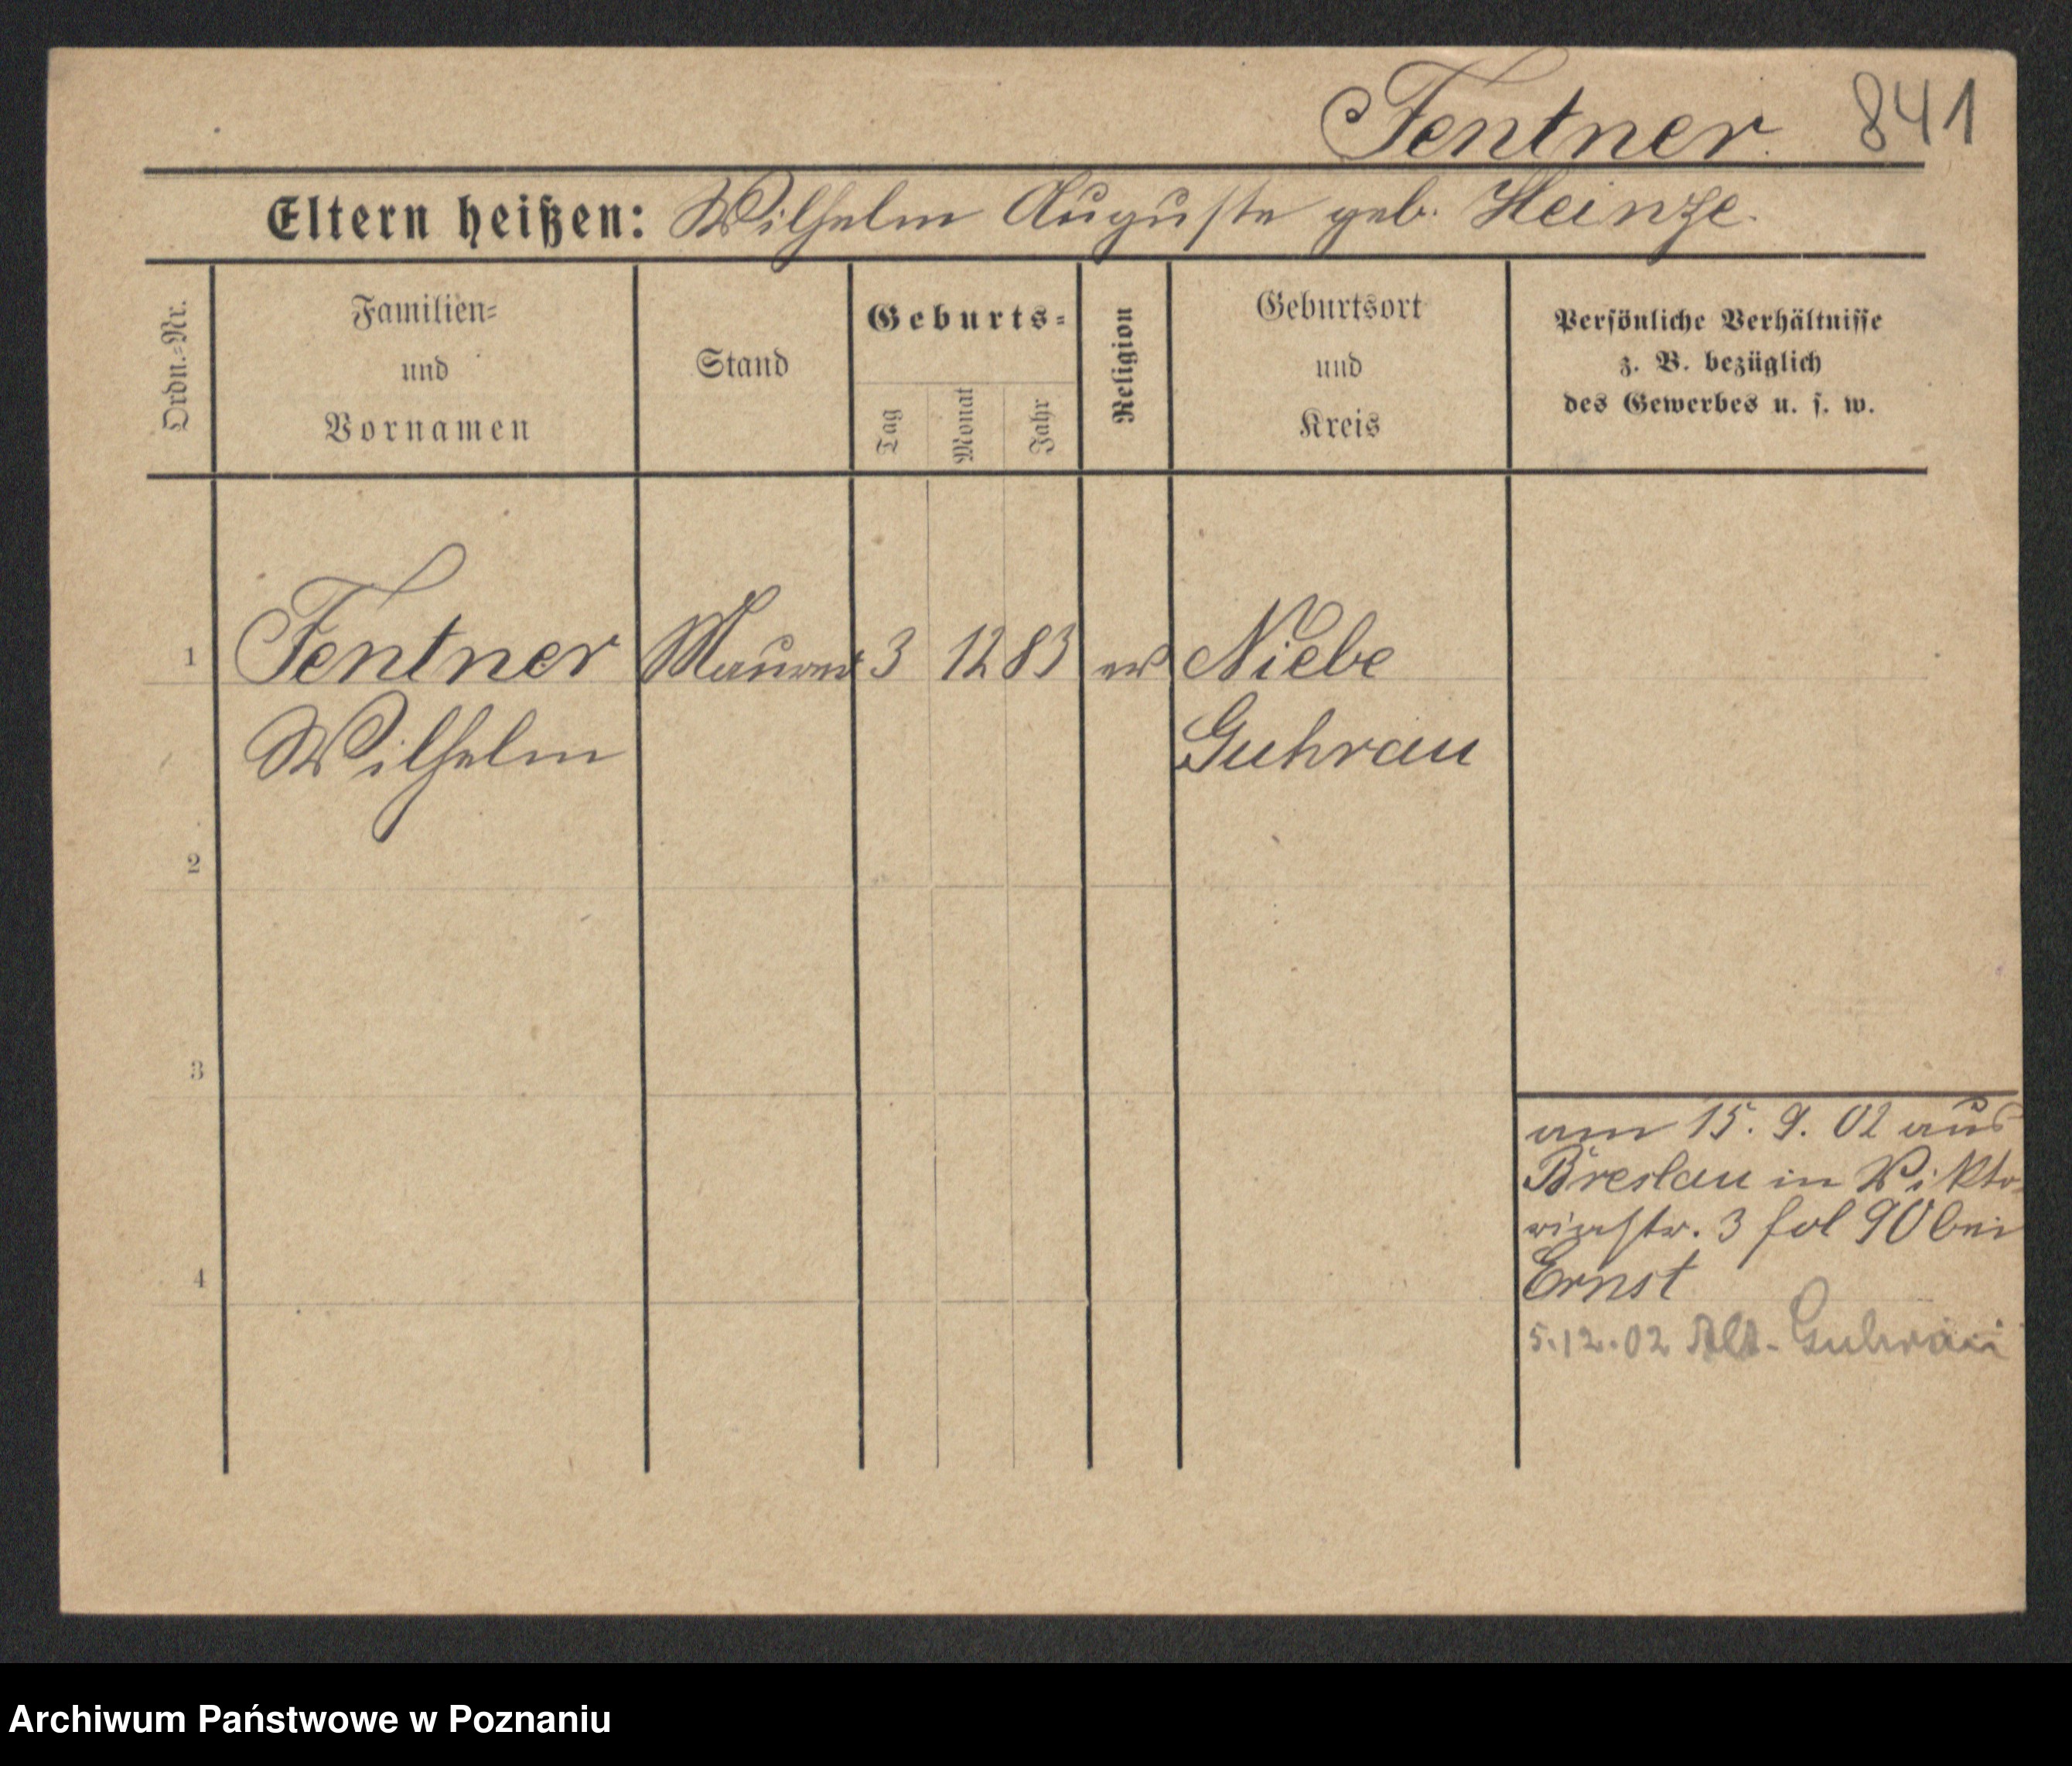 Fentner. 841
Eltern heißen: Wilhelm Auguste geb. Heinze.
Ordn.-Nr.
Familien-
und
Vornamen
Stand
Geburts-
Tag
Monat
Jahr
Religion
Geburtsort
und
Kreis
Persönliche Verhältnisse
z. B. bezüglich
des Gewerbes u. s. w.
1 Fentner Maurer 3 12 83 ev Niebe
Wilhelm Guhrau
2
3
4
am 15. 9. 02 aus
Breslau in Vikto-
riastr. 3 fol 90 bei
Ernst
5.12.02 Guhrau
Archiwum Państwowe w Poznaniu